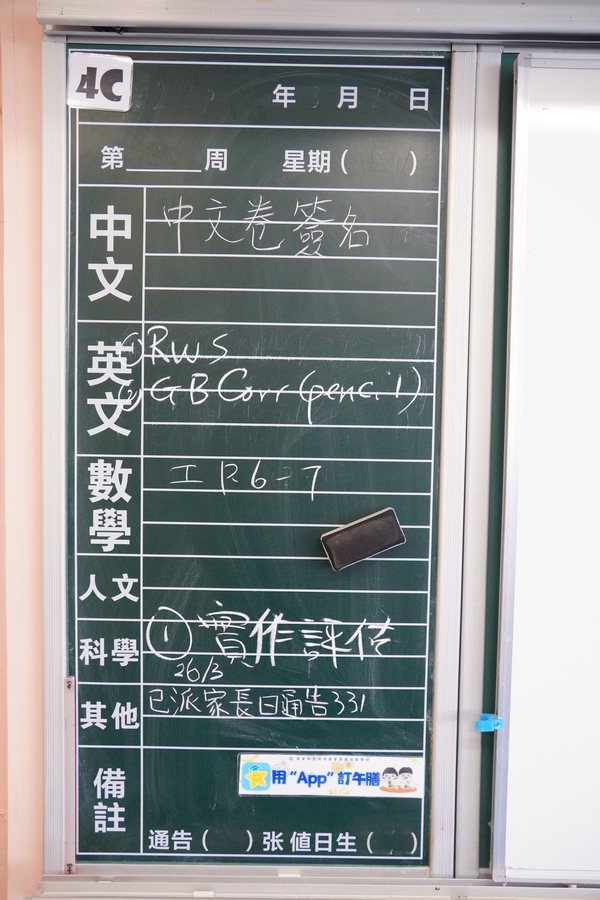 4C
年 月 日
第____周 星期( )
中文
中文卷簽名
英文
①RWS
②GB Corr (pencil)
數學
工 P.6-7
人文
科學
①實作評估
26/3
其他
已派家長日通告331
備註
用“App”訂午膳
通告( )张 值日生( )